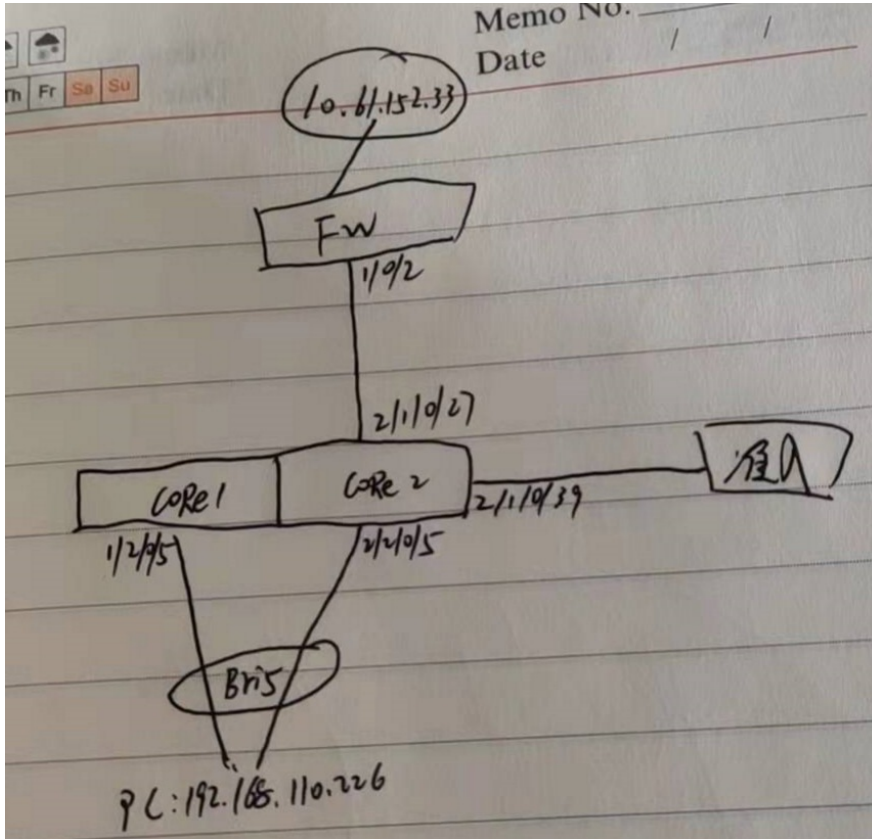 Memo No.
Date / /
Th Fr Sa Su
10.61.152.33
FW
1/0/2
2/1/0/27
CORe1
CORe 2
准入
2/1/0/39
1/2/0/5
2/2/0/5
Bri5
PC:192.168.110.226